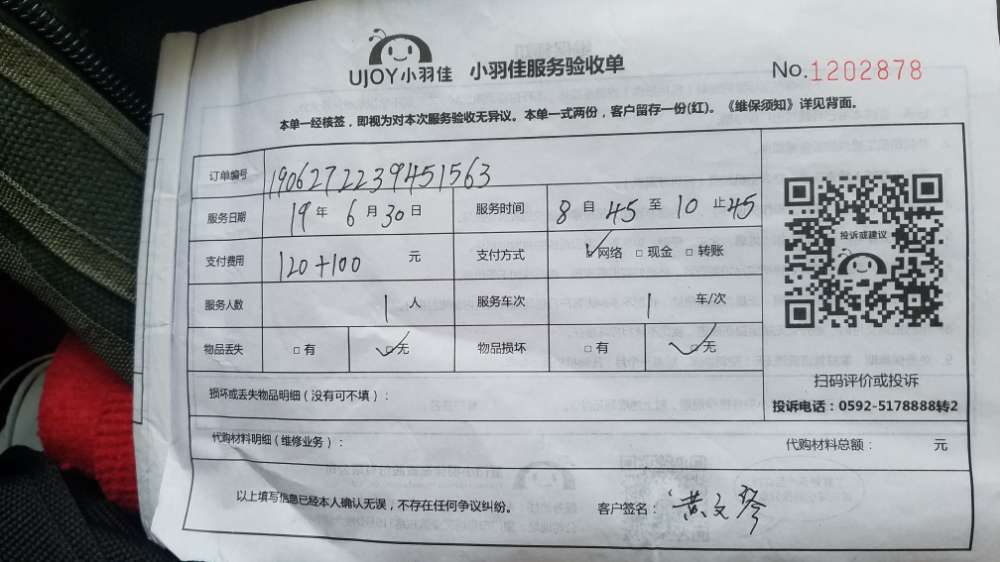 UJOY小羽佳 小羽佳服务验收单 No.1202878
本单一经核签，即视为对本次服务验收无异议。本单一式两份，客户留存一份(红)。《维保须知》详见背面。
订单编号 1906272239451563
服务日期 19年6月30日 服务时间 8自45至10止45
支付费用 120+100 元 支付方式 ☑网络 □现金 □转账
服务人数 1人 服务车次 1车/次
物品丢失 □有 ☑无 物品损坏 □有 ☑无
损坏或丢失物品明细（没有可不填）：
代购材料明细（维修业务）： 代购材料总额： 元
以上填写信息已经本人确认无误，不存在任何争议纠纷。 客户签名：黄文琴
投诉或建议
扫码评价或投诉
投诉电话：0592-5178888转2